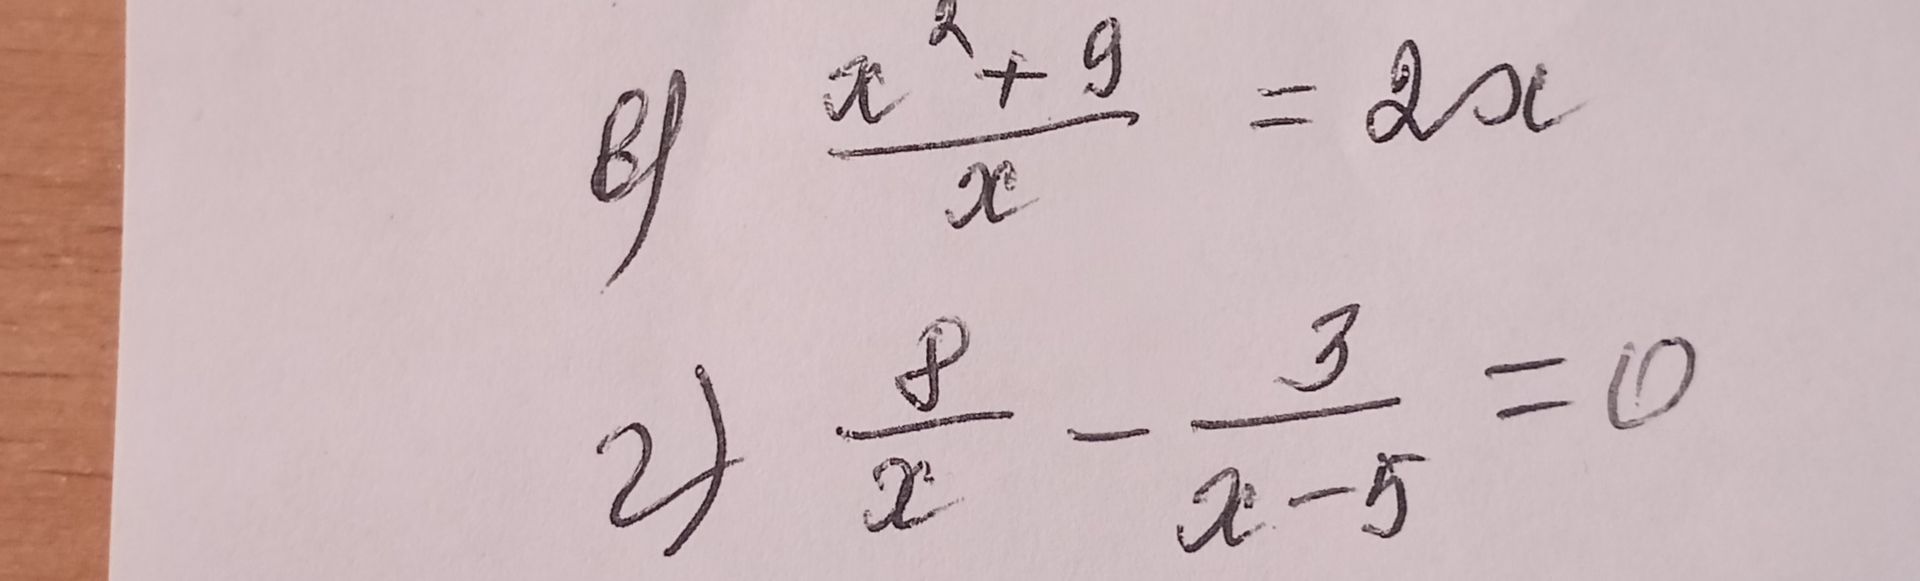 в) \frac{x^2+9}{x} = 2x
г) \frac{8}{x} - \frac{3}{x-5} = 0